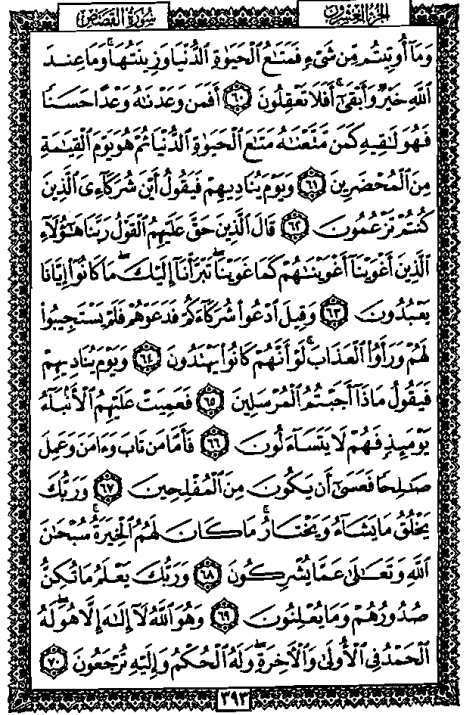 الجزء العشرون
سورة القصص
وَمَآ أُوتِيتُم مِّن شَىْءٍ فَمَتَٰعُ الْحَيَوٰةِ الدُّنْيَا وَزِينَتُهَا ۚ وَمَا عِندَ
اللَّهِ خَيْرٌ وَأَبْقَىٰٓ ۚ أَفَلَا تَعْقِلُونَ ٦٠ أَفَمَن وَعَدْنَٰهُ وَعْدًا حَسَنًا
فَهُوَ لَٰقِيهِ كَمَن مَّتَّعْنَٰهُ مَتَٰعَ الْحَيَوٰةِ الدُّنْيَا ثُمَّ هُوَ يَوْمَ الْقِيَٰمَةِ
مِنَ الْمُحْضَرِينَ ٦١ وَيَوْمَ يُنَادِيهِمْ فَيَقُولُ أَيْنَ شُرَكَآءِىَ الَّذِينَ
كُنتُمْ تَزْعُمُونَ ٦٢ قَالَ الَّذِينَ حَقَّ عَلَيْهِمُ الْقَوْلُ رَبَّنَا هَٰٓؤُلَآءِ
الَّذِينَ أَغْوَيْنَآ أَغْوَيْنَٰهُمْ كَمَا غَوَيْنَا ۖ تَبَرَّأْنَآ إِلَيْكَ ۖ مَا كَانُوٓا۟ إِيَّانَا
يَعْبُدُونَ ٦٣ وَقِيلَ ادْعُوا۟ شُرَكَآءَكُمْ فَدَعَوْهُمْ فَلَمْ يَسْتَجِيبُوا۟
لَهُمْ وَرَأَوُا۟ الْعَذَابَ ۚ لَوْ أَنَّهُمْ كَانُوا۟ يَهْتَدُونَ ٦٤ وَيَوْمَ يُنَادِيهِمْ
فَيَقُولُ مَاذَآ أَجَبْتُمُ الْمُرْسَلِينَ ٦٥ فَعَمِيَتْ عَلَيْهِمُ الْأَنۢبَآءُ
يَوْمَئِذٍ فَهُمْ لَا يَتَسَآءَلُونَ ٦٦ فَأَمَّا مَن تَابَ وَءَامَنَ وَعَمِلَ
صَٰلِحًا فَعَسَىٰٓ أَن يَكُونَ مِنَ الْمُفْلِحِينَ ٦٧ وَرَبُّكَ
يَخْلُقُ مَا يَشَآءُ وَيَخْتَارُ ۗ مَا كَانَ لَهُمُ الْخِيَرَةُ ۚ سُبْحَٰنَ
اللَّهِ وَتَعَٰلَىٰ عَمَّا يُشْرِكُونَ ٦٨ وَرَبُّكَ يَعْلَمُ مَا تُكِنُّ
صُدُورُهُمْ وَمَا يُعْلِنُونَ ٦٩ وَهُوَ اللَّهُ لَآ إِلَٰهَ إِلَّا هُوَ ۖ لَهُ
الْحَمْدُ فِى الْأُولَىٰ وَالْءَاخِرَةِ ۖ وَلَهُ الْحُكْمُ وَإِلَيْهِ تُرْجَعُونَ ٧٠
٣٩٣